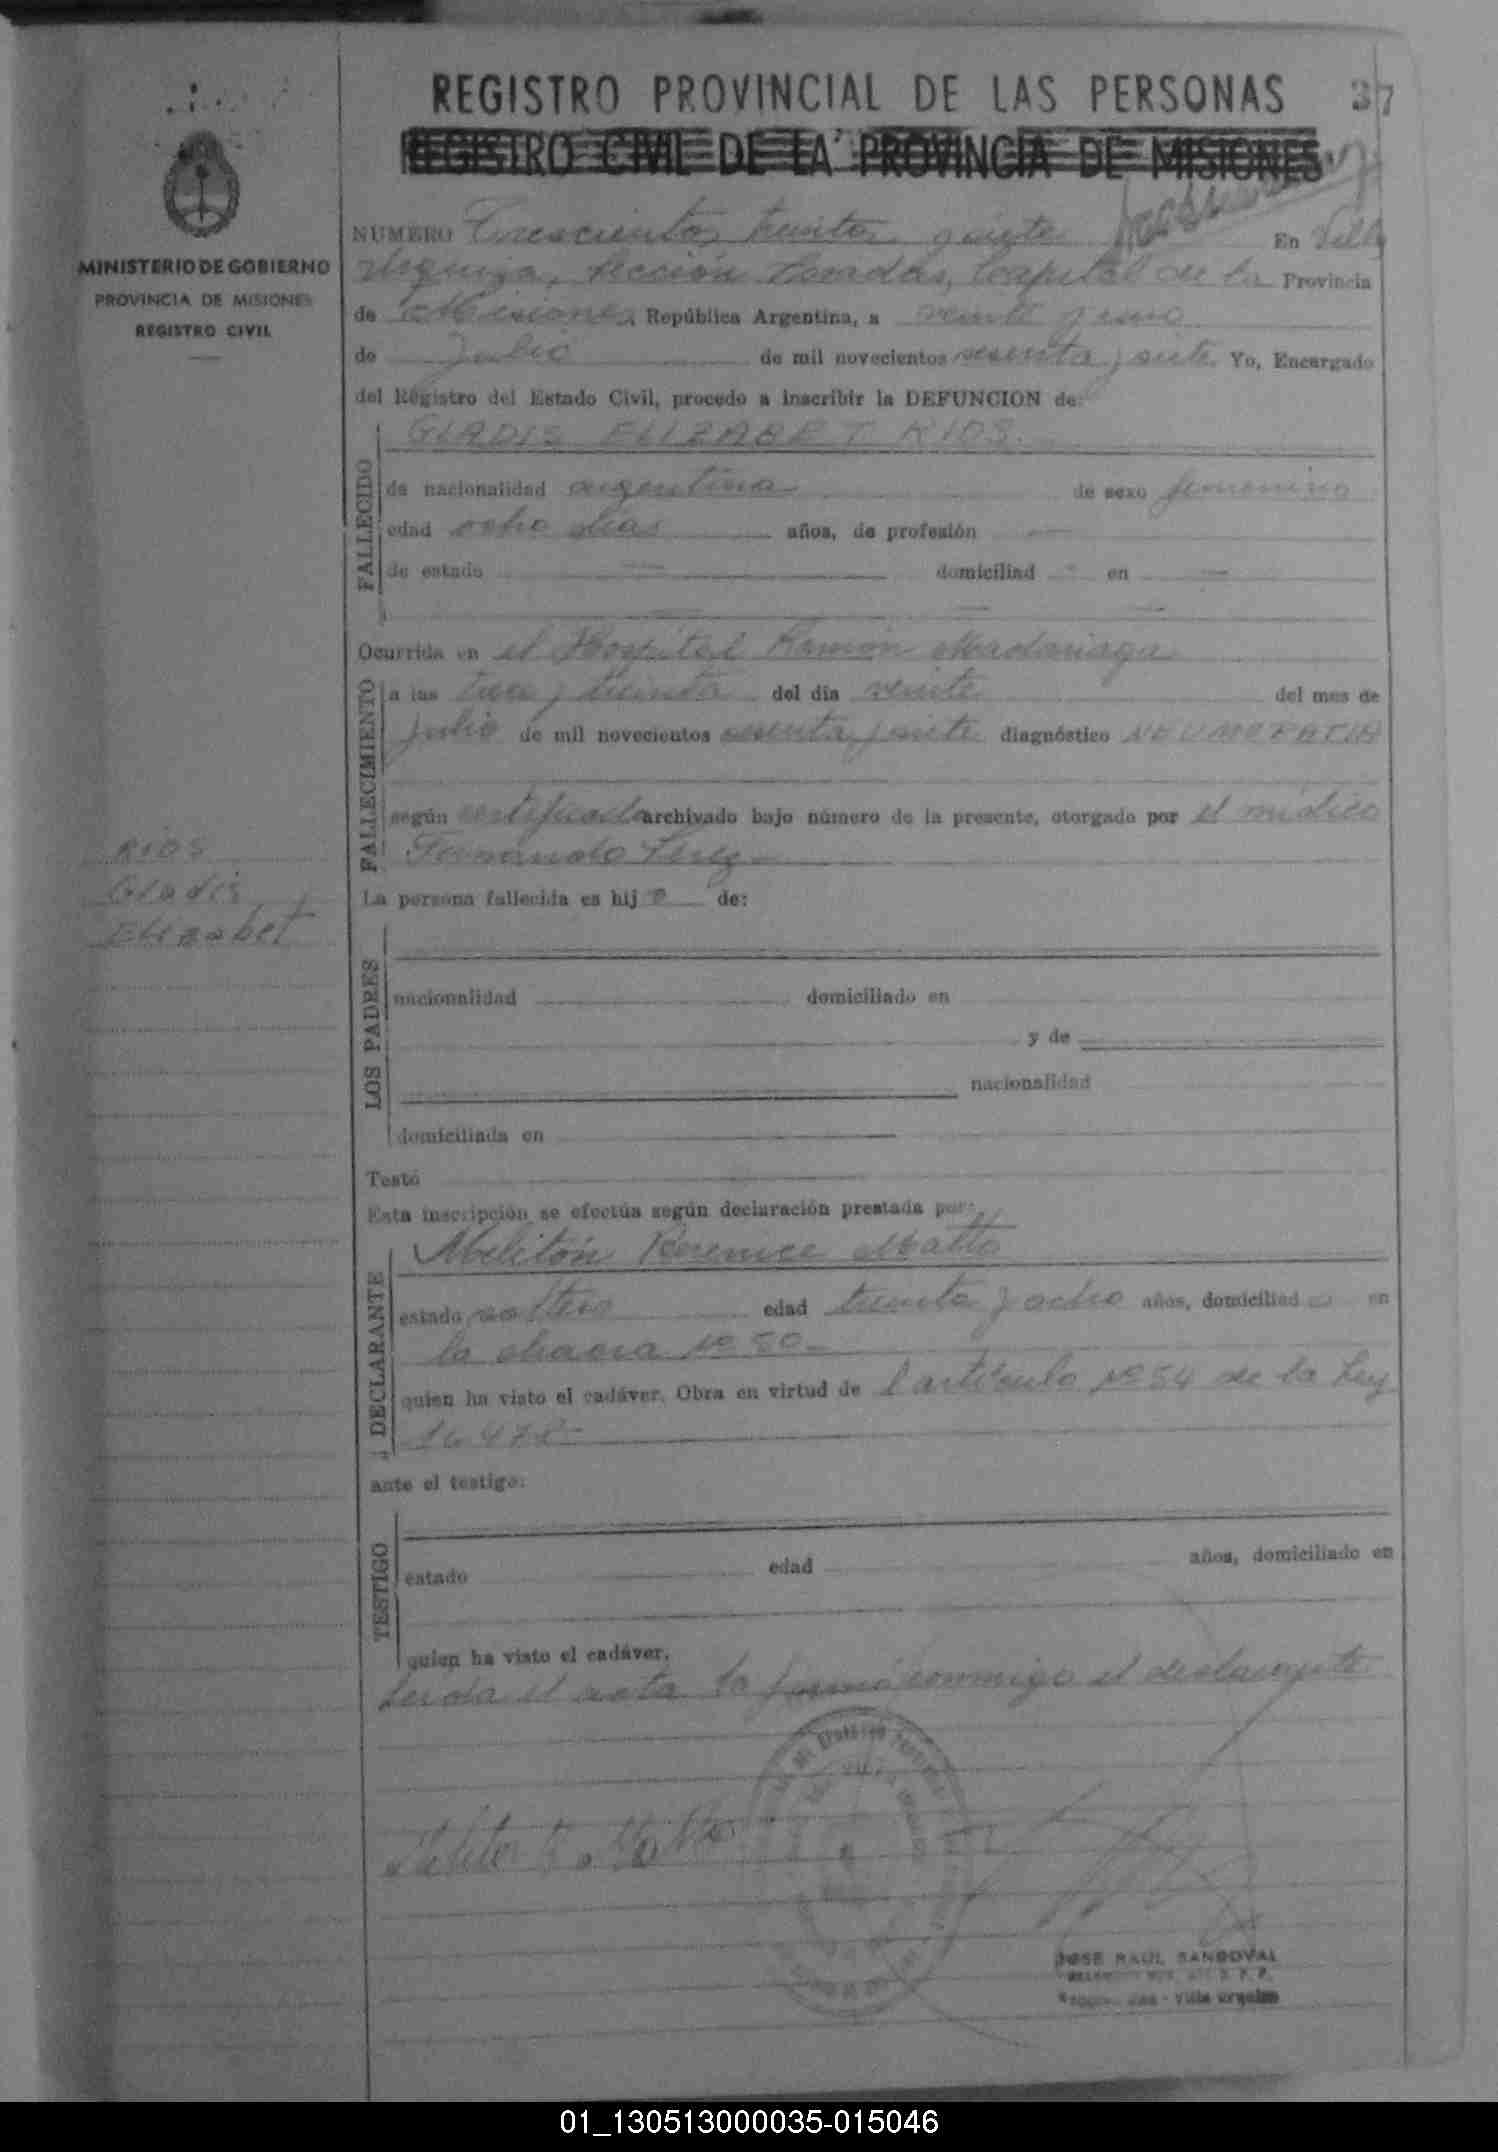 REGISTRO PROVINCIAL DE LAS PERSONAS
37
REGISTRO CIVIL DE LA PROVINCIA DE MISIONES
MINISTERIO DE GOBIERNO
PROVINCIA DE MISIONES
REGISTRO CIVIL
NUMERO Trescientos treinta y siete En Villa
Urquiza, Sección Posadas, Capital de la Provincia
de Misiones, República Argentina, a veinte y uno
de Julio de mil novecientos sesenta y siete Yo, Encargado
del Registro del Estado Civil, procedo a inscribir la DEFUNCION de:
GLADIS ELIZABET RIOS.
FALLECIDO
de nacionalidad argentina de sexo femenino
edad ocho días años, de profesión —
de estado — domiciliad en —
Ocurrida en el Hospital Ramón Madariaga
FALLECIMIENTO
a las tres y treinta del día veinte del mes de
julio de mil novecientos sesenta y siete diagnóstico NEUMOPATIA
según certificado archivado bajo número de la presente, otorgado por el médico
Fernando Perez
RIOS
Gladis
Elizabet
La persona fallecida es hij a de:
LOS PADRES
nacionalidad domiciliado en
y de
nacionalidad
domiciliada en
Testó
Esta inscripción se efectúa según declaración prestada por:
DECLARANTE
Melitón Matto
estado soltero edad treinta y ocho años, domiciliad o en
la chacra Nº 80
quien ha visto el cadáver. Obra en virtud de l artículo Nº 54 de la Ley
14.478
ante el testigo:
TESTIGO
estado edad años, domiciliado en
quien ha visto el cadáver.
Leida el acta la firmó conmigo el declarante
JOSE RAUL SANDOVAL
Villa Urquiza
01_130513000035-015046